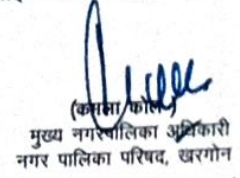 (कमला कौल)
मुख्य नगरपालिका अधिकारी
नगर पालिका परिषद, खरगोन